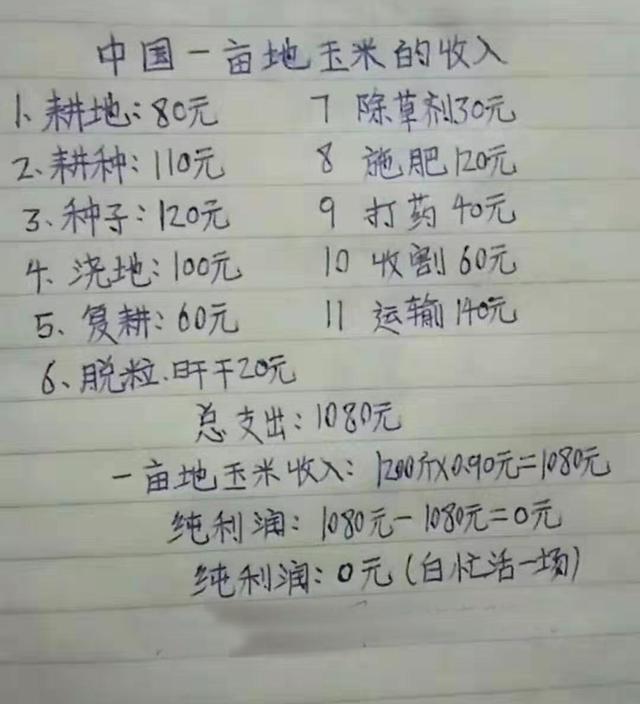 中国一亩地玉米的收入
1、耕地：80元 7 除草剂30元
2、耕种：110元 8 施肥120元
3、种子：120元 9 打药40元
4、浇地：100元 10 收割60元
5、复耕：60元 11 运输140元
6、脱粒.旰干20元
总支出：1080元
一亩地玉米收入：1200斤×0.90元=1080元
纯利润：1080元-1080元=0元
纯利润：0元(白忙活一场)